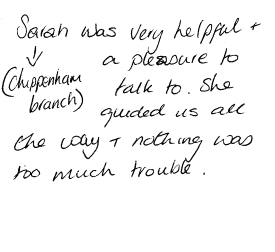 Sarah was very helpful +
↓ a pleasure to
(Chippenham talk to. She
branch) guided us all
the way + nothing was
too much trouble.